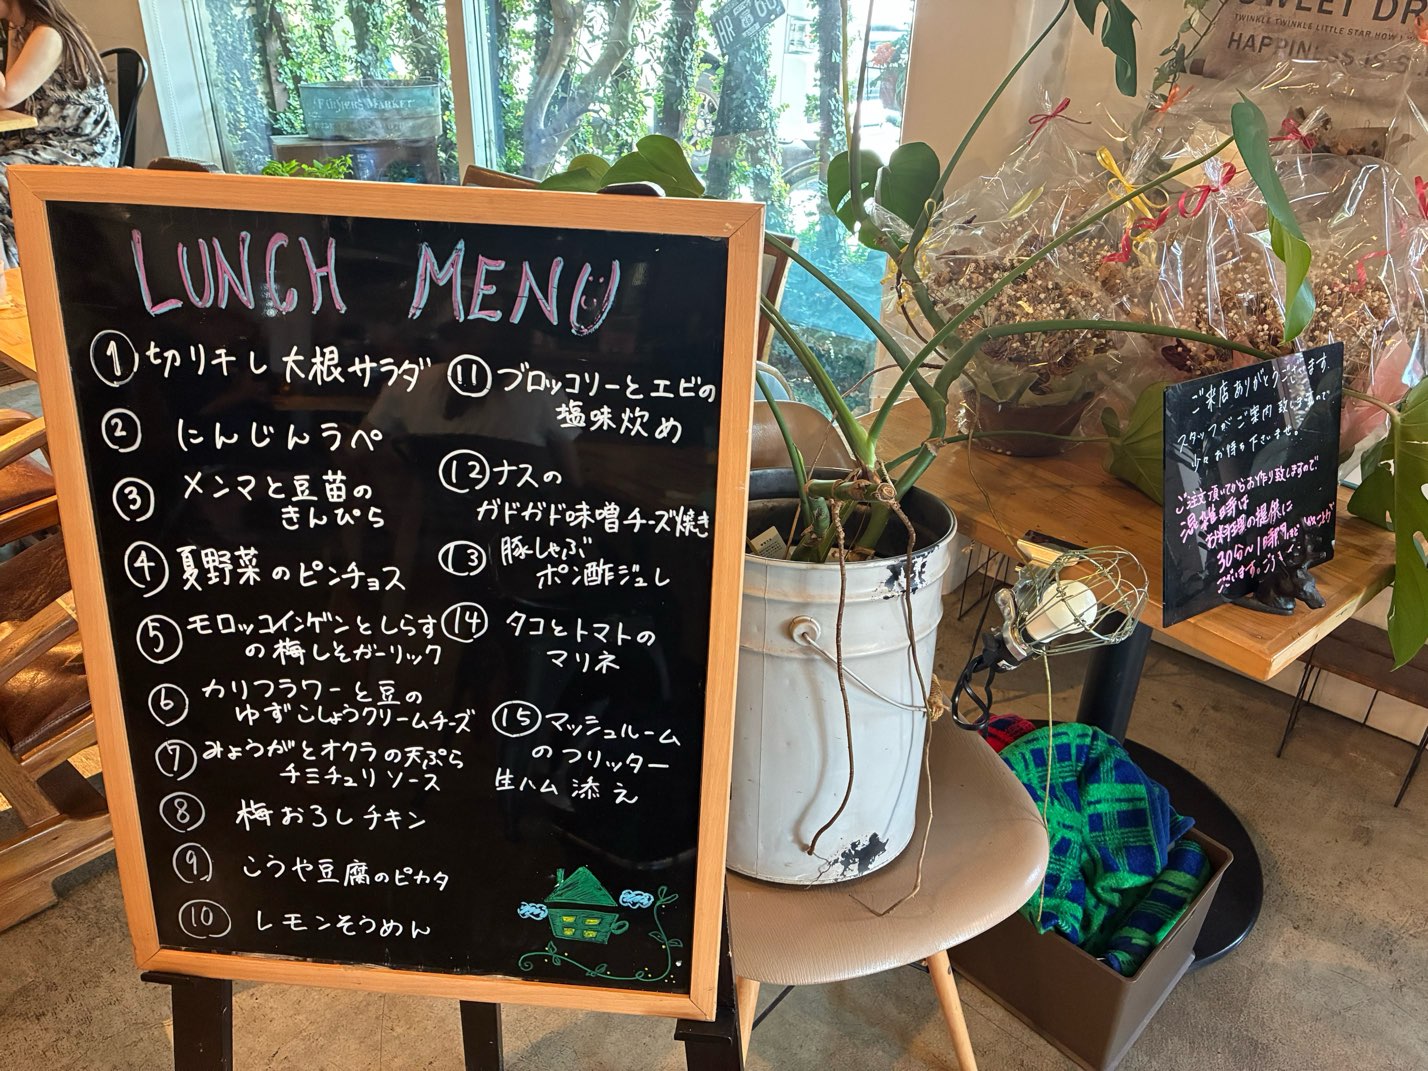 LUNCH MENU
① 切り干し大根サラダ
② にんじんラペ
③ メンマと豆苗の
きんぴら
④ 夏野菜のピンチョス
⑤ モロッコインゲンとしらす
の梅しそガーリック
⑥ カリフラワーと豆の
ゆずこしょうクリームチーズ
⑦ みょうがとオクラの天ぷら
チミチュリソース
⑧ 梅おろしチキン
⑨ こうや豆腐のピカタ
⑩ レモンそうめん
⑪ ブロッコリーとエビの
塩味炊め
⑫ ナスの
ガドガド味噌チーズ焼き
⑬ 豚しゃぶ
ポン酢ジュレ
⑭ タコとトマトの
マリネ
⑮ マッシュルーム
のフリッター
生ハム添え
FARMER'S MARKET
SWEET DR
TWINKLE TWINKLE LITTLE STAR HOW I
HAPPINESS IS S
ご来店ありがとうございます。
スタッフがご案内致しますので
少々お待ち下さいませ。
ご注文頂いてからお作り致しますので、
混雑時は
お料理の提供に
30分〜1時間ほど
ございます。